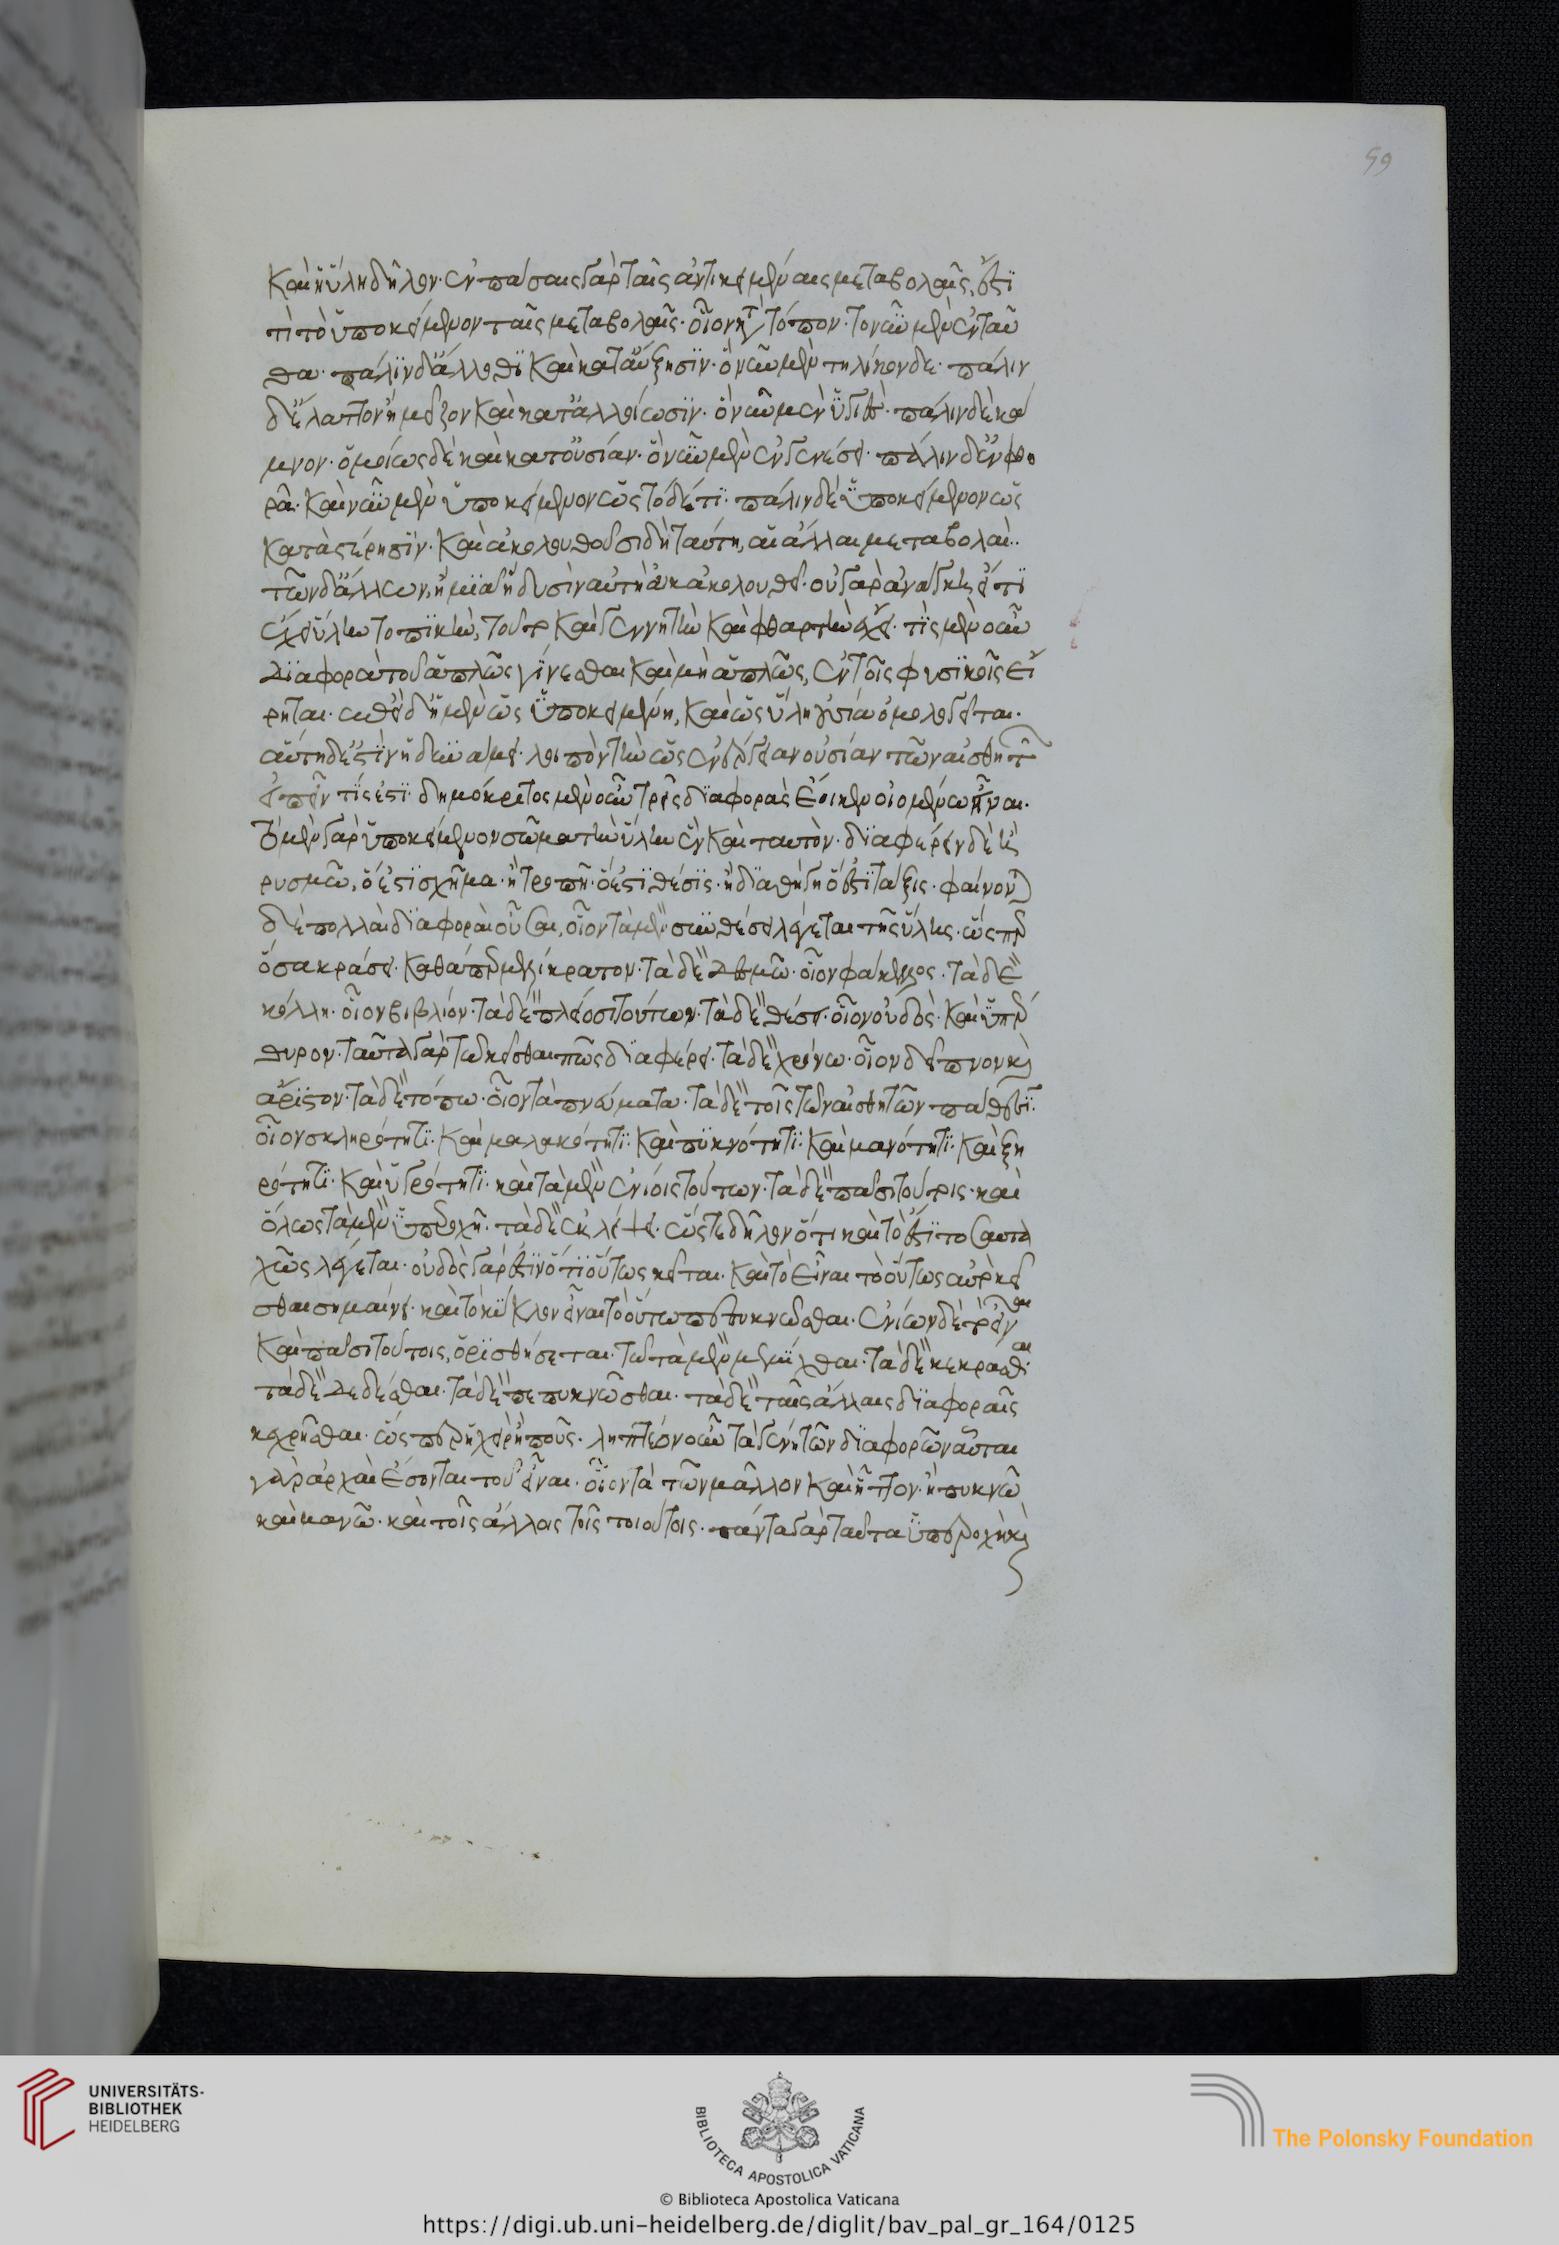 59
καὶ ἡ ὕλη δῆλον· ἐν πάσαις γὰρ ταῖς ἀντικειμέναις μεταβολαῖς, ἐστί
τὶ τὸ ὑποκείμενον ταῖς μεταβολαῖς· οἷον κατὰ τόπον· τὸ νῦν μὲν ἐνταῦ
θα· πάλιν δ' ἄλλοθι καὶ κατ' αὔξησιν· ὃ νῦν μὲν τηλίκονδε· πάλιν
δ' ἔλαττον ἢ μεῖζον καὶ κατ' ἀλλοίωσιν· ὃ νῦν μὲν ὑγιὲς· πάλιν δὲ κά
μνον· ὁμοίως δὲ καὶ κατ' οὐσίαν· ὃ νῦν μὲν ἐν γενέσει· πάλιν δ' ἐν φθο
ρᾶ· καὶ νῦν μὲν ὑποκείμενον ὡς τόδέ τι· πάλιν δὲ ὑποκείμενον ὡς
κατὰ στέρησιν· καὶ ἀκολουθοῦσι δὴ ταύτη, αἱ ἄλλαι μεταβολαὶ·
τῶν δ' ἄλλων, ἢ μιᾶ ἢ δυσὶν αὐτὴ οὐκ ἀκολουθεῖ· οὐ γὰρ ἀνάγκη εἴ τι
ἔχει ὕλην τοπικὴν, τοῦτο καὶ γεννητὴν καὶ φθαρτὴν ἔχει· τίς μὲν οὖν
διαφορὰ τοῦ ἁπλῶς γίνεσθαι καὶ μὴ ἁπλῶς, ἐν τοῖς φυσικοῖς εἴ
ρηται· ἐπεὶ δ' ἡ μὲν ὡς ὑποκειμένη, καὶ ὡς ὕλη οὐσία ὁμολογεῖται·
αὕτη δέ ἐστιν ἡ δυνάμει· λοιπὸν τὴν ὡς ἐνέργειαν οὐσίαν τῶν αἰσθητῶν
εἰπεῖν τίς ἐστι· δημόκριτος μὲν οὖν τρεῖς διαφορὰς ἔοικεν οἰομένω εἶναι·
τὸ μὲν γὰρ ὑποκείμενον σῶμα τὴν ὕλην ἓν καὶ ταυτὸν· διαφέρειν δὲ ἢ
ρυσμῶ, ὅ ἐστι σχῆμα· ἢ τροπῆ· ὅ ἐστι θέσις· ἢ διαθηγῆ ὅ ἐστι τάξις· φαίνονται
δὲ πολλαὶ διαφοραὶ οὖσαι, οἷον τὰ μὲν συνθέσει λέγεται τῆς ὕλης· ὥσπερ
ὅσα κράσει· καθάπερ μελίκρατον· τὰ δὲ δεσμῶ· οἷον φάκελος· τὰ δὲ
κόλλη· οἷον βιβλίον· τὰ δὲ πλείοσι τούτων· τὰ δὲ θέσει· οἷον οὐδὸς· καὶ ὑπέρ
θυρον· ταῦτα γὰρ τῶ κεῖσθαι πῶς διαφέρει· τὰ δὲ χρόνω· οἷον δεῖπνον καὶ
ἄριστον· τὰ δὲ τόπω· οἷον τὰ πνεύματα· τὰ δὲ τοῖς τῶν αἰσθητῶν πάθεσι·
οἷον σκληρότητι· καὶ μαλακότητι· καὶ πυκνότητι· καὶ μανότητι· καὶ ξη
ρότητι· καὶ ὑγρότητι· καὶ τὰ μὲν ἐνίοις τούτων· τὰ δὲ πᾶσι τούτοις· καὶ
ὅλως τὰ μὲν ὑπεροχῆ· τὰ δὲ ἐλλείψει· ὥστε δῆλον ὅτι καὶ τὸ ἐστὶ τοσαυτα
χῶς λέγεται· οὐδὸς γὰρ ἐστὶν ὅτι οὕτως κεῖται· καὶ τὸ εἶναι τὸ οὕτως αὐτὸ κεῖ
σθαι σημαίνει· καὶ τὸ κρύσταλλον εἶναι τὸ οὕτω πεπυκνῶσθαι· ἐνίων δὲ τὸ εἶναι
καὶ πᾶσι τούτοις, ὁρισθήσεται· τῶ τὰ μὲν μεμίχθαι· τὰ δὲ κεκρᾶσθαι·
τὰ δὲ δεδέσθαι· τὰ δὲ πεπυκνῶσθαι· τὰ δὲ ταῖς ἄλλαις διαφοραῖς
κεχρῆσθαι· ὥσπερ ἢ χεὶρ ἢ ποῦς· ληπτέον οὖν τὰ γένη τῶν διαφορῶν αὗται
γὰρ ἀρχαὶ ἔσονται τοῦ εἶναι· οἷον τὰ τῶν μᾶλλον καὶ ἧττον· ἢ πυκνῶ
καὶ μανῶ· καὶ τοῖς ἄλλοις τοῖς τοιούτοις· πάντα γὰρ ταῦτα ὑπεροχὴ καὶ
UNIVERSITÄTS-
BIBLIOTHEK
HEIDELBERG
BIBLIOTECA APOSTOLICA VATICANA
The Polonsky Foundation
© Biblioteca Apostolica Vaticana
https://digi.ub.uni-heidelberg.de/diglit/bav_pal_gr_164/0125